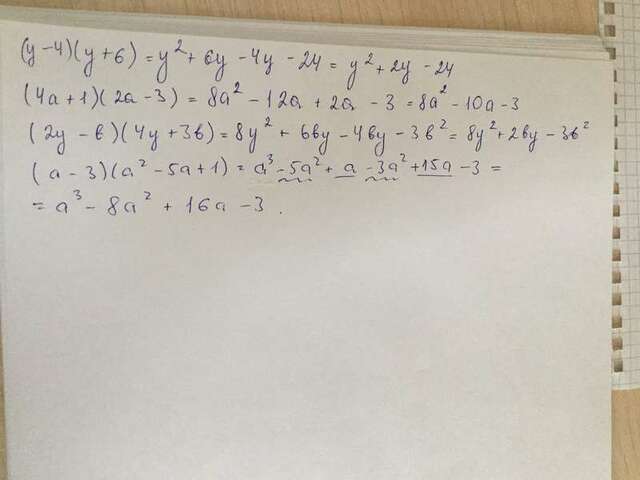 (y-4)(y+6) = y² + 6y - 4y - 24 = y² + 2y - 24
(4a+1)(2a-3) = 8a² - 12a + 2a - 3 = 8a² - 10a - 3
(2y - b)(4y+3b) = 8y² + 6by - 4by - 3b² = 8y² + 2by - 3b²
(a-3)(a² - 5a + 1) = a³ - 5a² + a - 3a² + 15a - 3 =
= a³ - 8a² + 16a - 3.